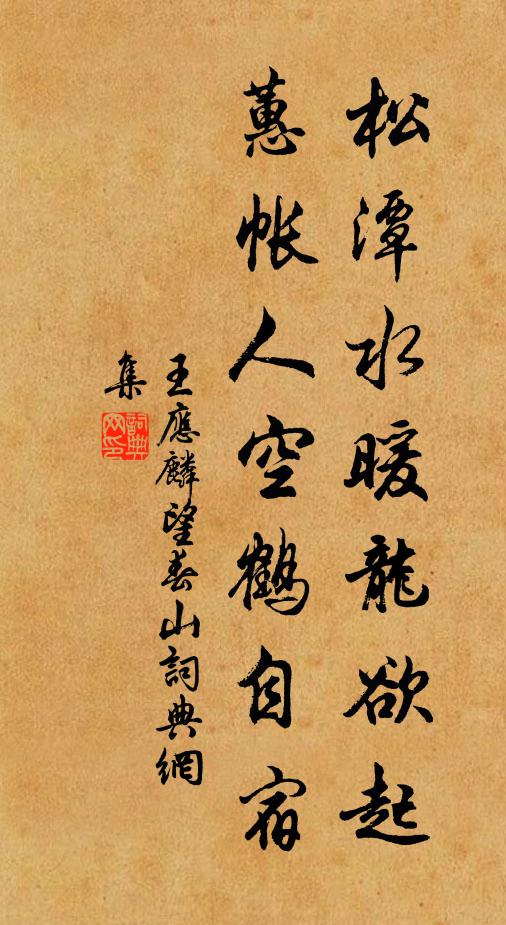 松潭水暖龍欲起
蕙帳人空鶴自宿
王應麟望春山詞典網
集
詞典
網印